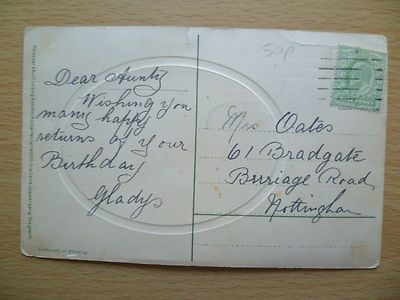 50p
Dear Aunty
Wishing you
many happy
returns of your
Birthday
Gladys
Mrs Oates
61 Bradgate
Burriage Road
Nottingham